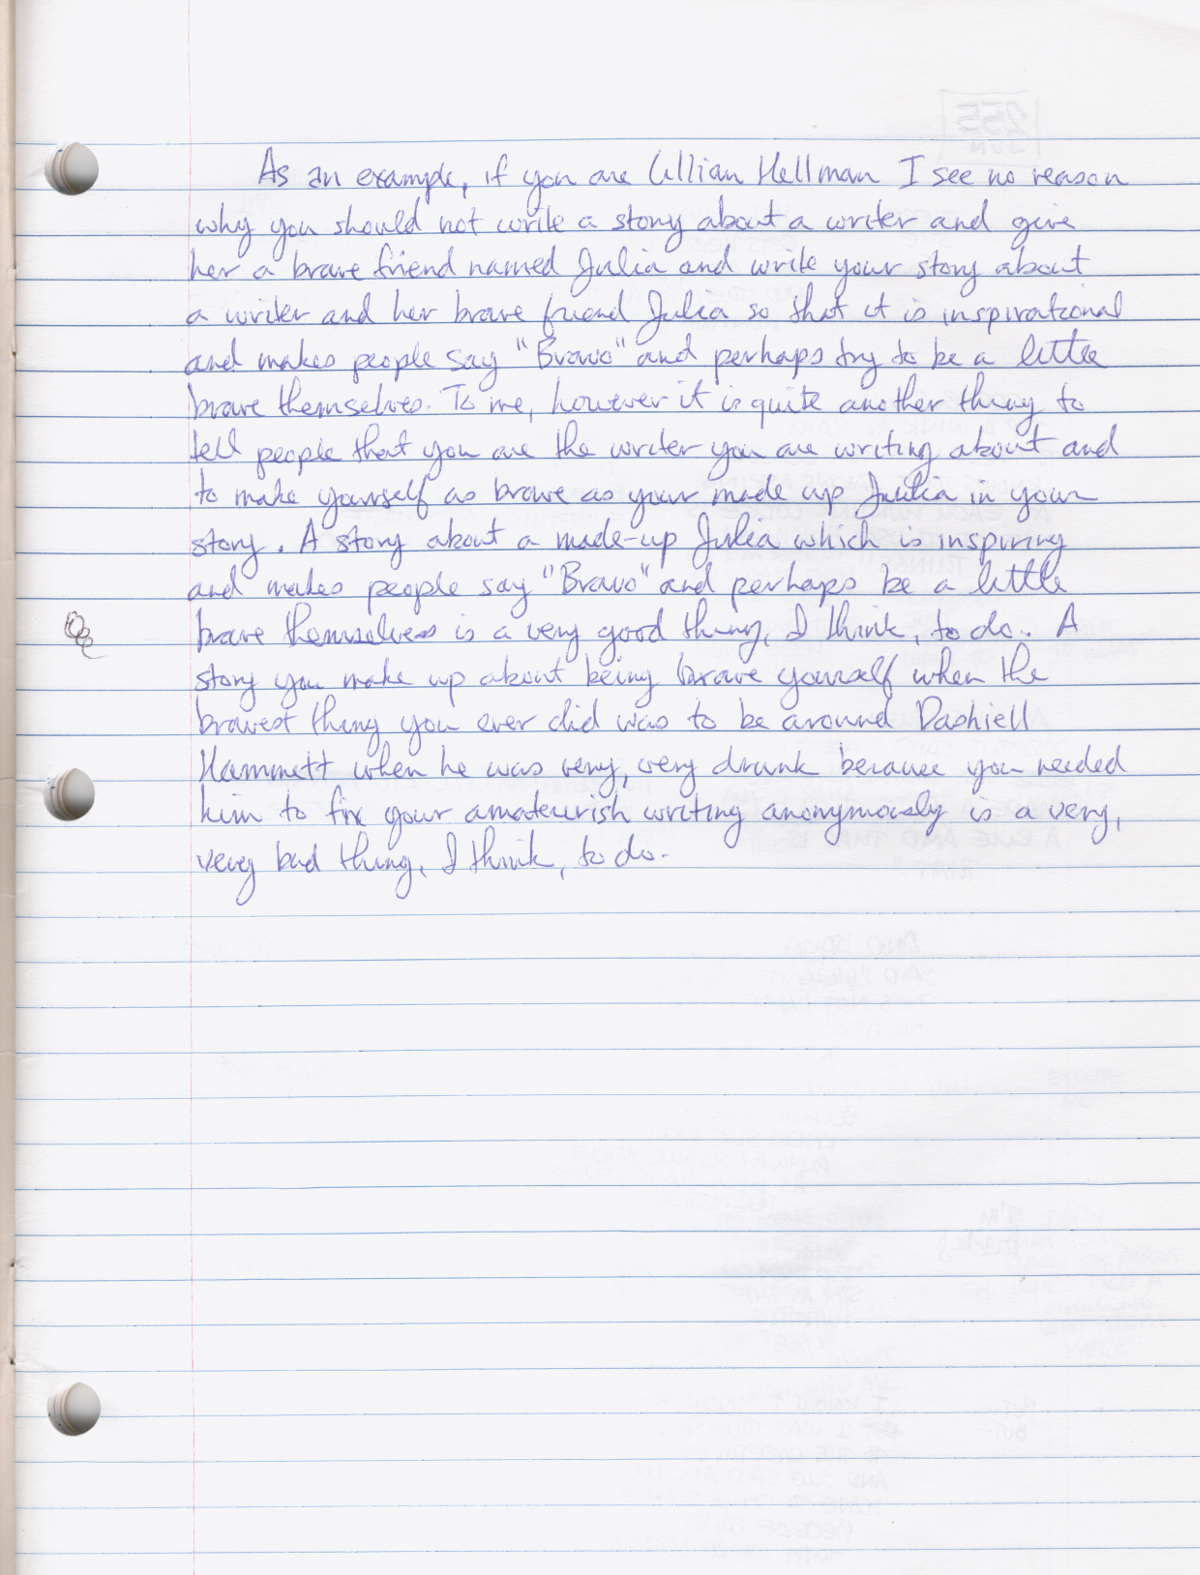 As an example, if you are Lillian Hellman I see no reason
why you should not write a story about a writer and give
her a brave friend named Julia and write your story about
a writer and her brave friend Julia so that it is inspirational
and makes people say "Bravo" and perhaps try to be a little
brave themselves. To me, however it is quite another thing to
tell people that you are the writer you are writing about and
to make yourself as brave as your made up Julia in your
story. A story about a made-up Julia which is inspiring
and makes people say "Bravo" and perhaps be a little
brave themselves is a very good thing, I think, to do. A
story you make up about being brave yourself when the
bravest thing you ever did was to be around Dashiell
Hammett when he was very, very drunk because you needed
him to fix your amateurish writing anonymously is a very,
very bad thing, I think, to do.